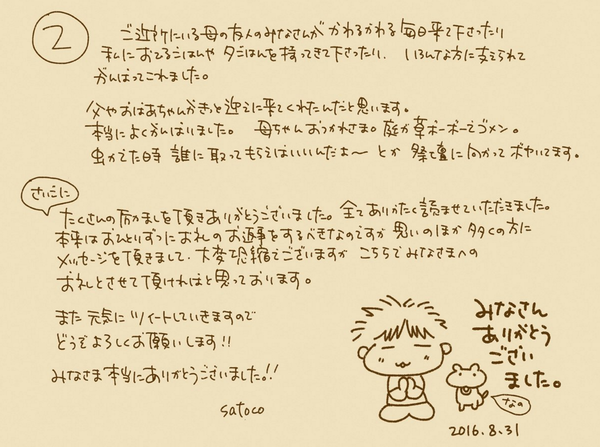 2
ご近所にいる母の友人のみなさんが かわるがわる毎日来て下さったり
私におひるごはんや夕ごはんを持ってきて下さったり、いろんな方に支えられて
がんばってこれました。
父やおばあちゃんがきっと迎えに来てくれたんだと思います。
本当によくがんばりました。 母ちゃんおつかれさま。庭が草ボーボーでゴメン。
虫がでた時 誰に取ってもらえばいいんだよ〜 とか 祭壇に向かってボヤいてます。
さいごに
たくさんの励ましを頂きありがとうございました。全てありがたく読ませていただきました。
本来はおひとりずつにお礼のお返事をするべきなのですが 思いのほか多くの方に
メッセージを頂きまして、大変恐縮でございますが こちらでみなさまへの
お礼とさせて頂ければと思っております。
また元気にツイートしていきますので
どうぞよろしくお願いします!!
みなさま本当にありがとうございました!!
satoco
みなさん
ありがとう
ござい
ました。
なの
2016.8.31